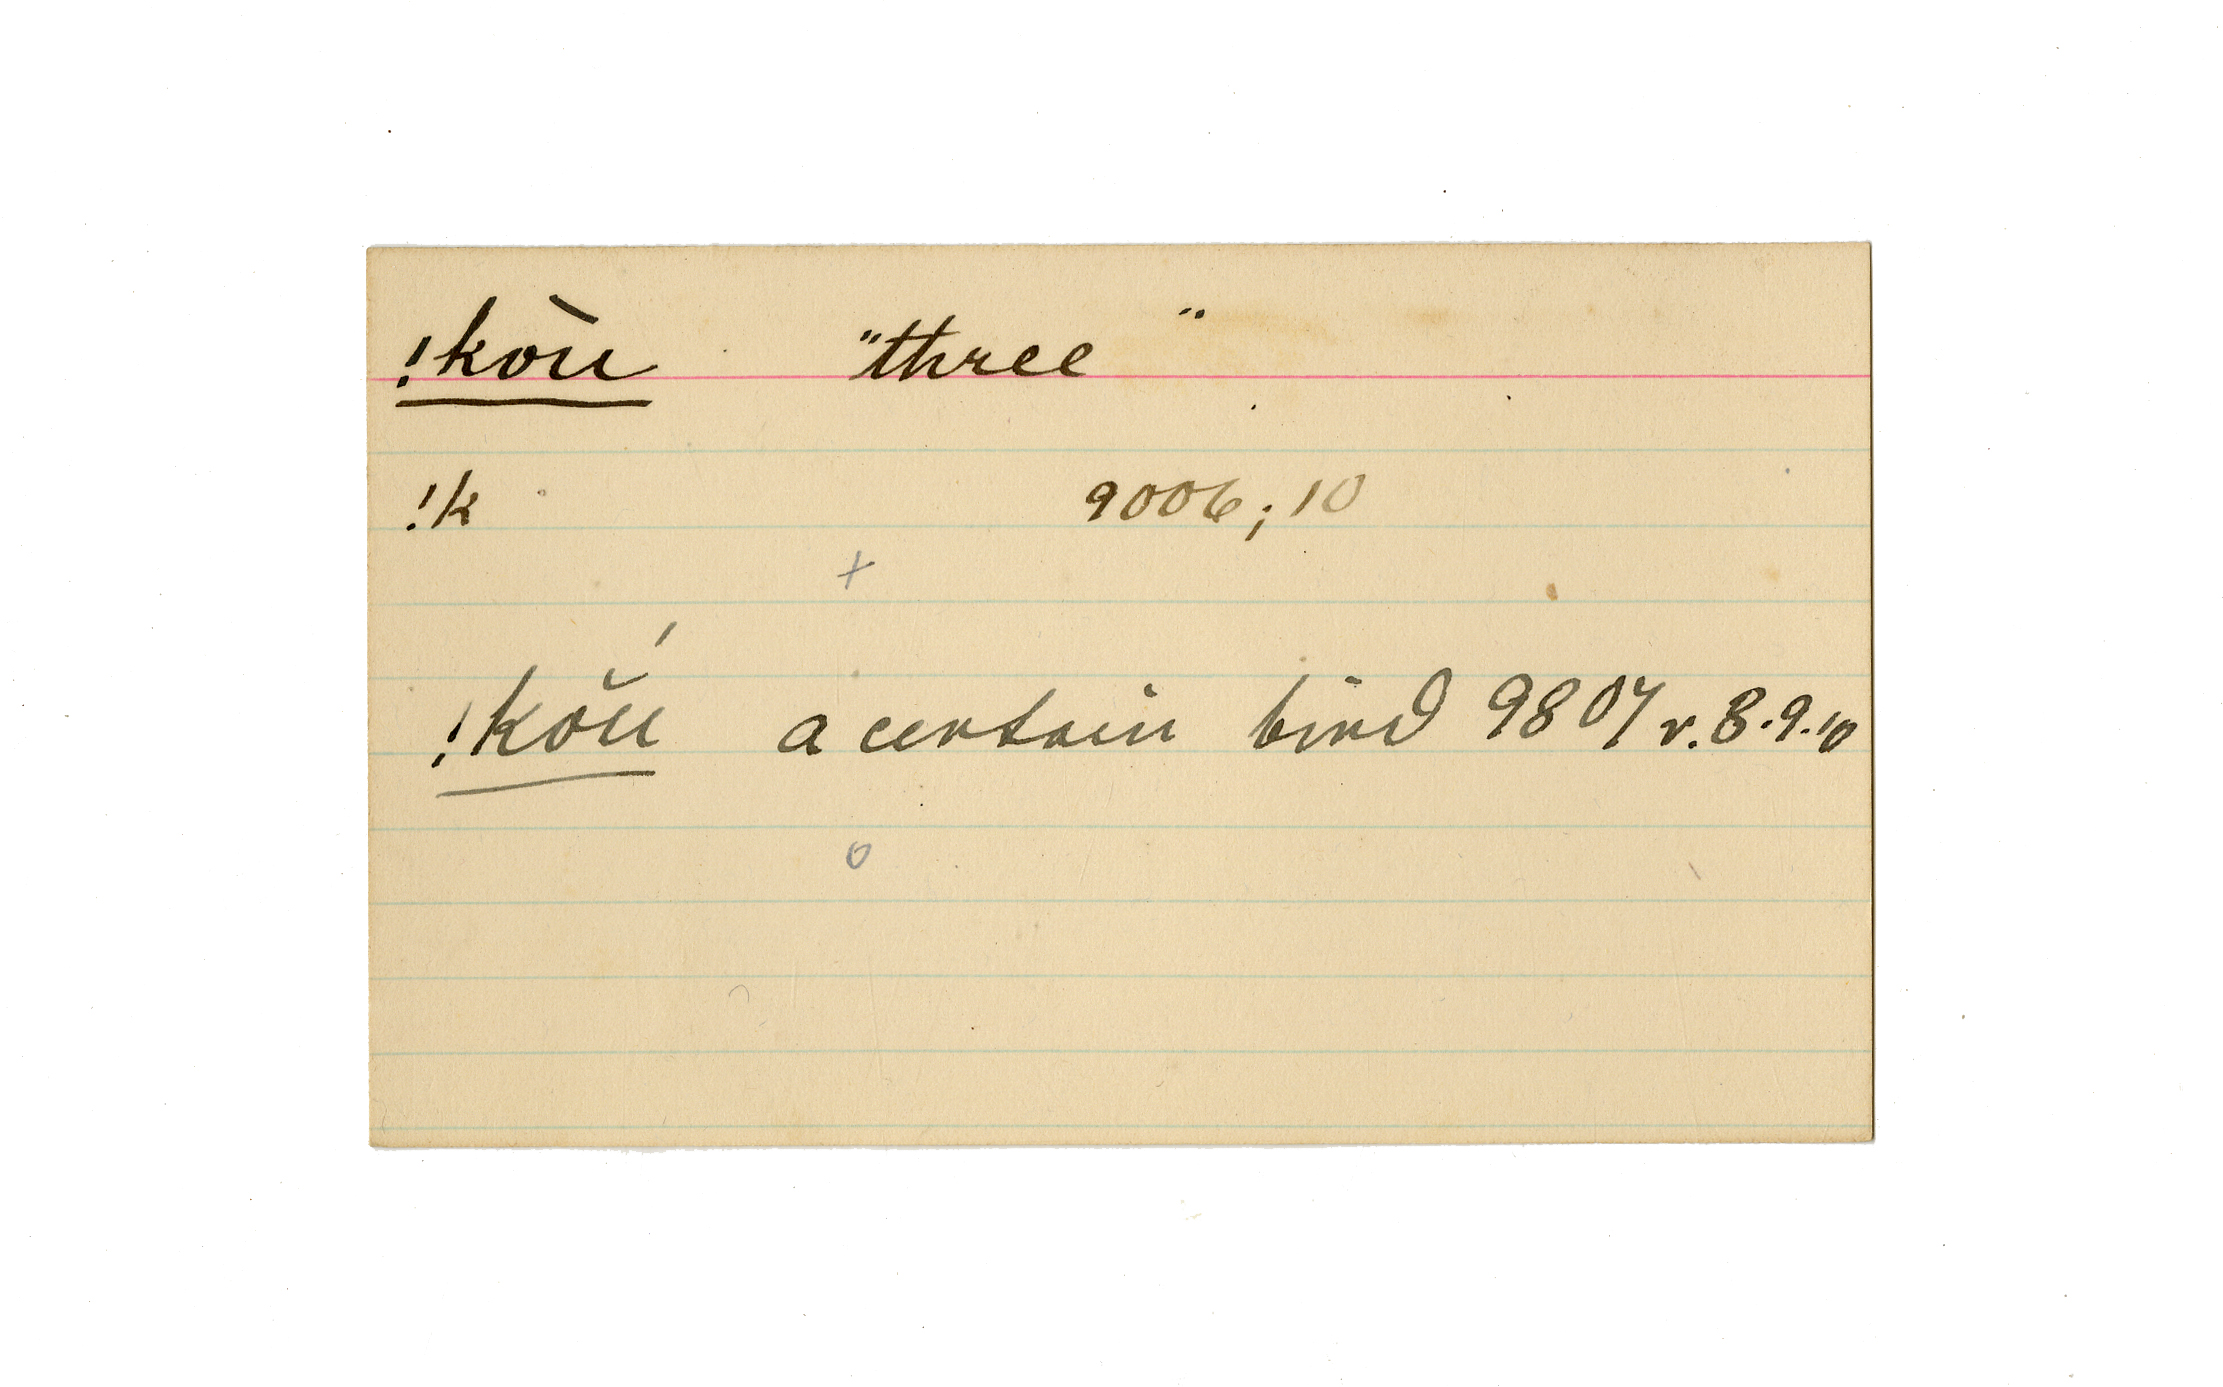 !kòu "three"
!k 9006; 10
+
!kŏú a certain bird 9807 v. 8.9.10
o